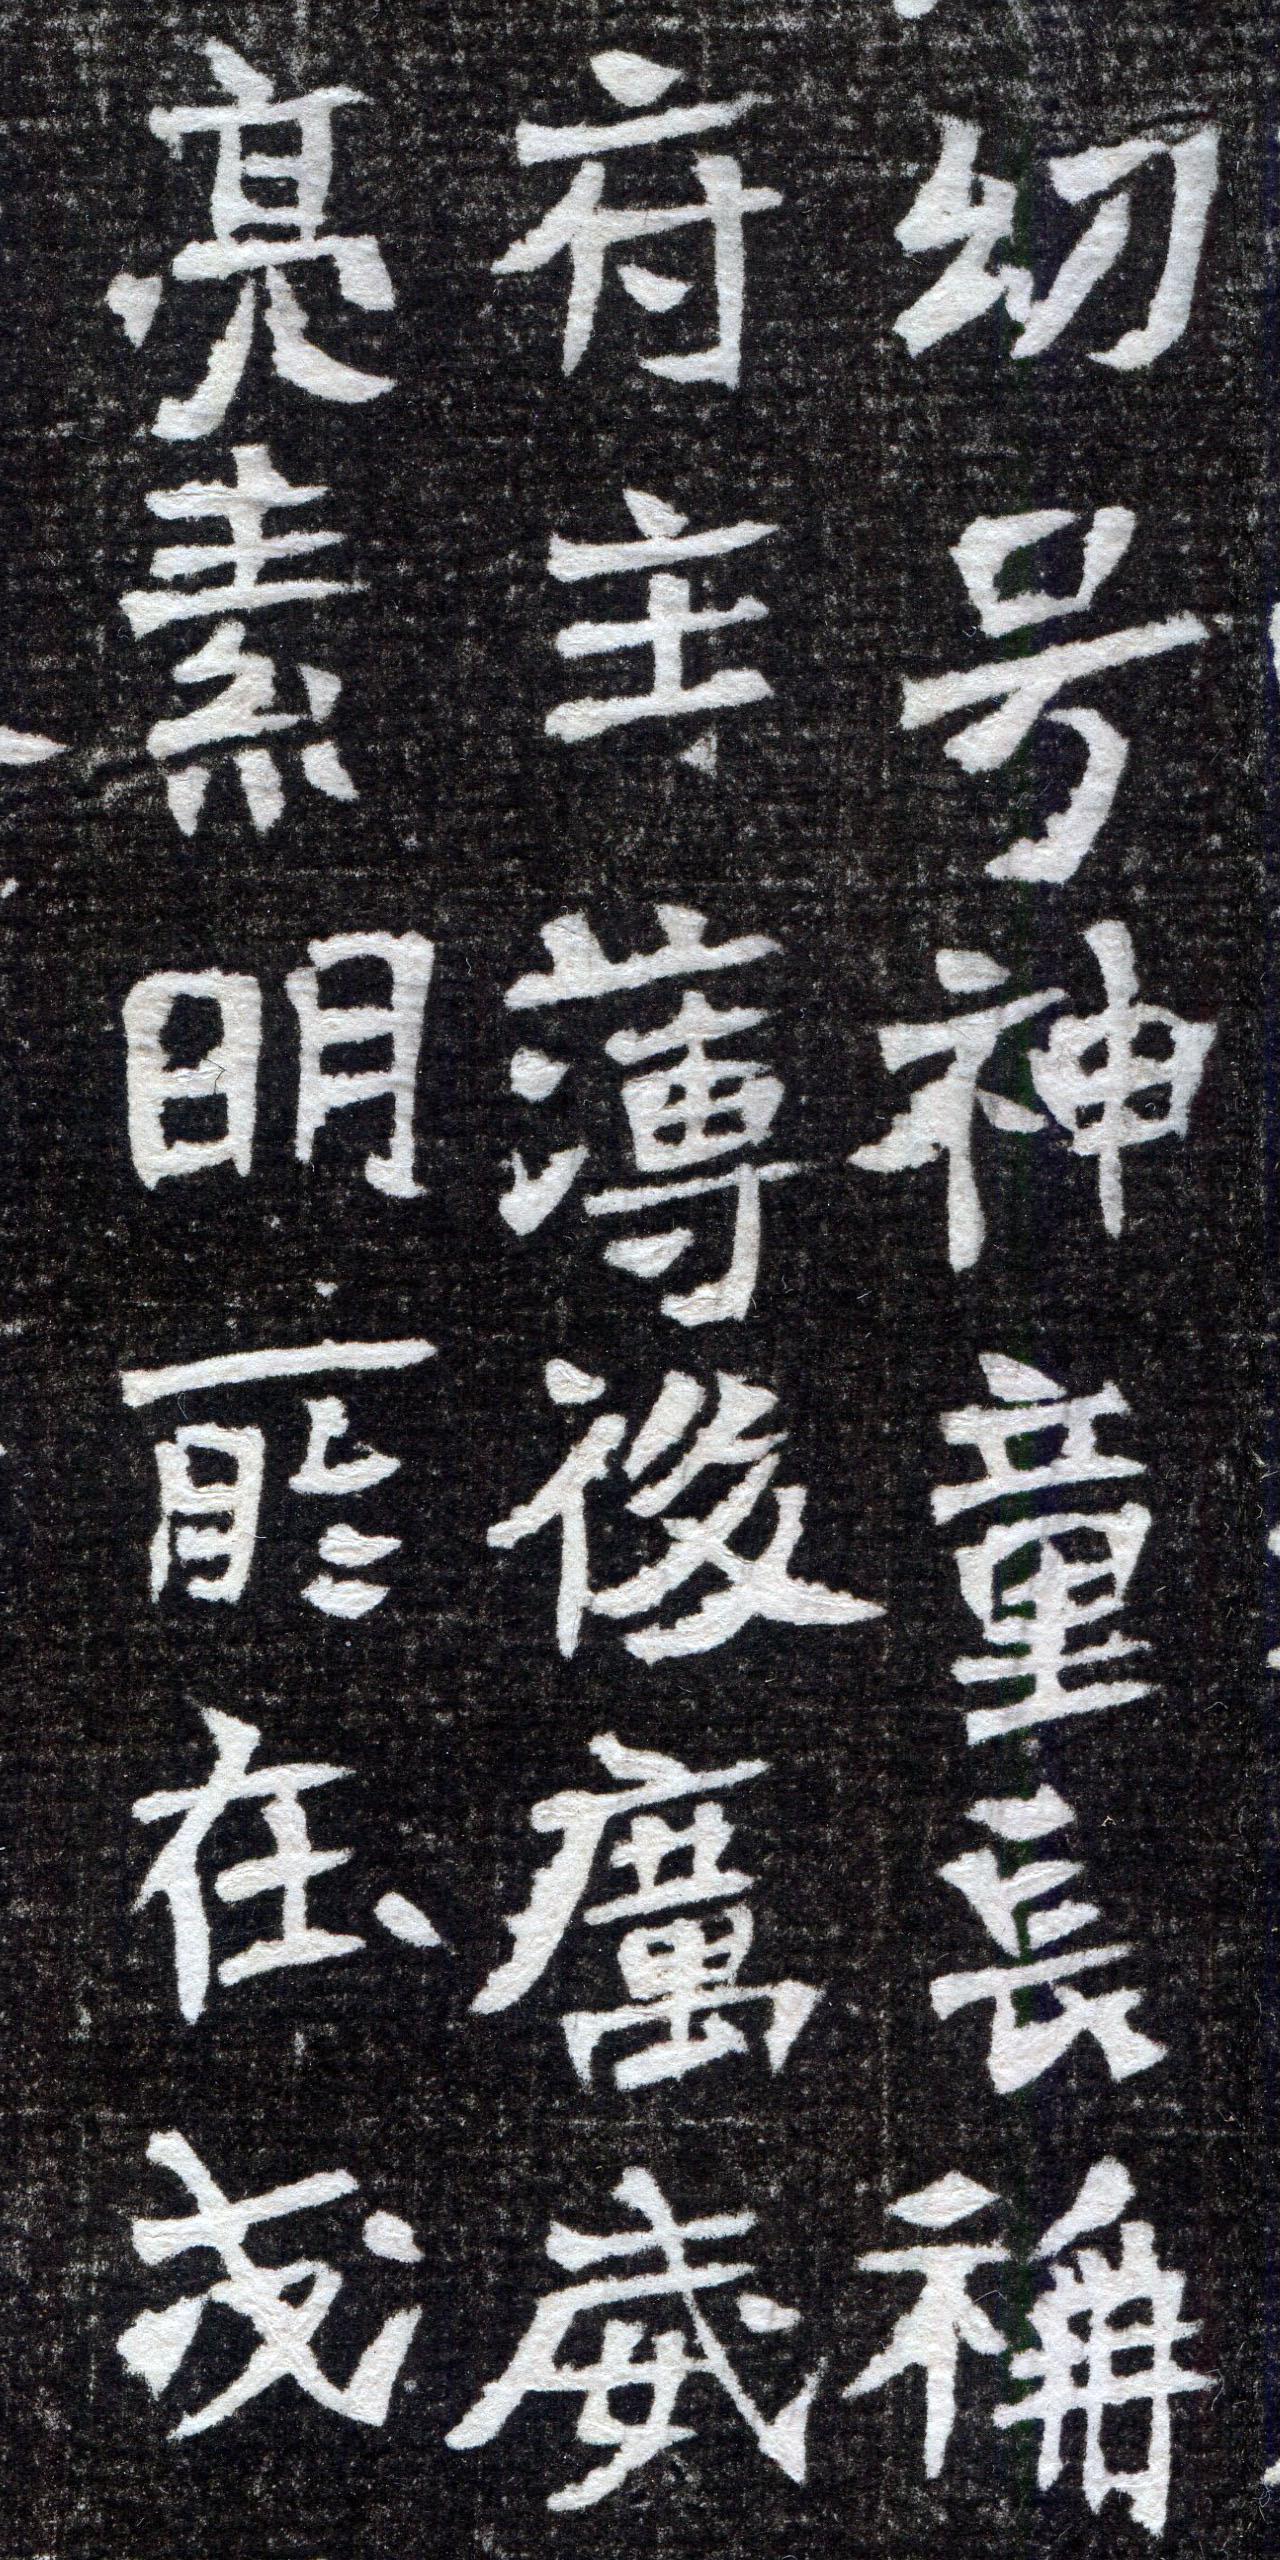 幼号神童長稱
府主薄後厲威
亮素明能在戎